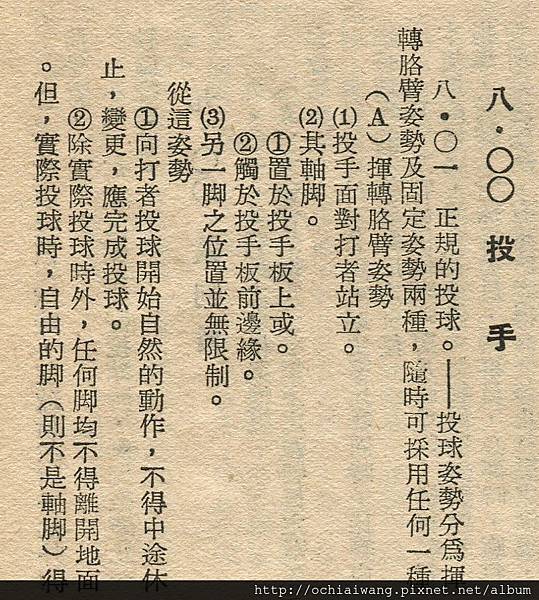 八・〇〇 投手
八・〇一 正規的投球。——投球姿勢分爲揮
轉胳臂姿勢及固定姿勢兩種，隨時可採用任何一種
（A）揮轉胳臂姿勢
⑴投手面對打者站立。
⑵其軸脚。
①置於投手板上或。
②觸於投手板前邊緣。
⑶另一脚之位置並無限制。
從這姿勢
①向打者投球開始自然的動作，不得中途休
止，變更，應完成投球。
②除實際投球時外，任何脚均不得離開地面
。但，實際投球時，自由的脚（則不是軸脚）得
http://ochiaiwang.pixnet.net/album